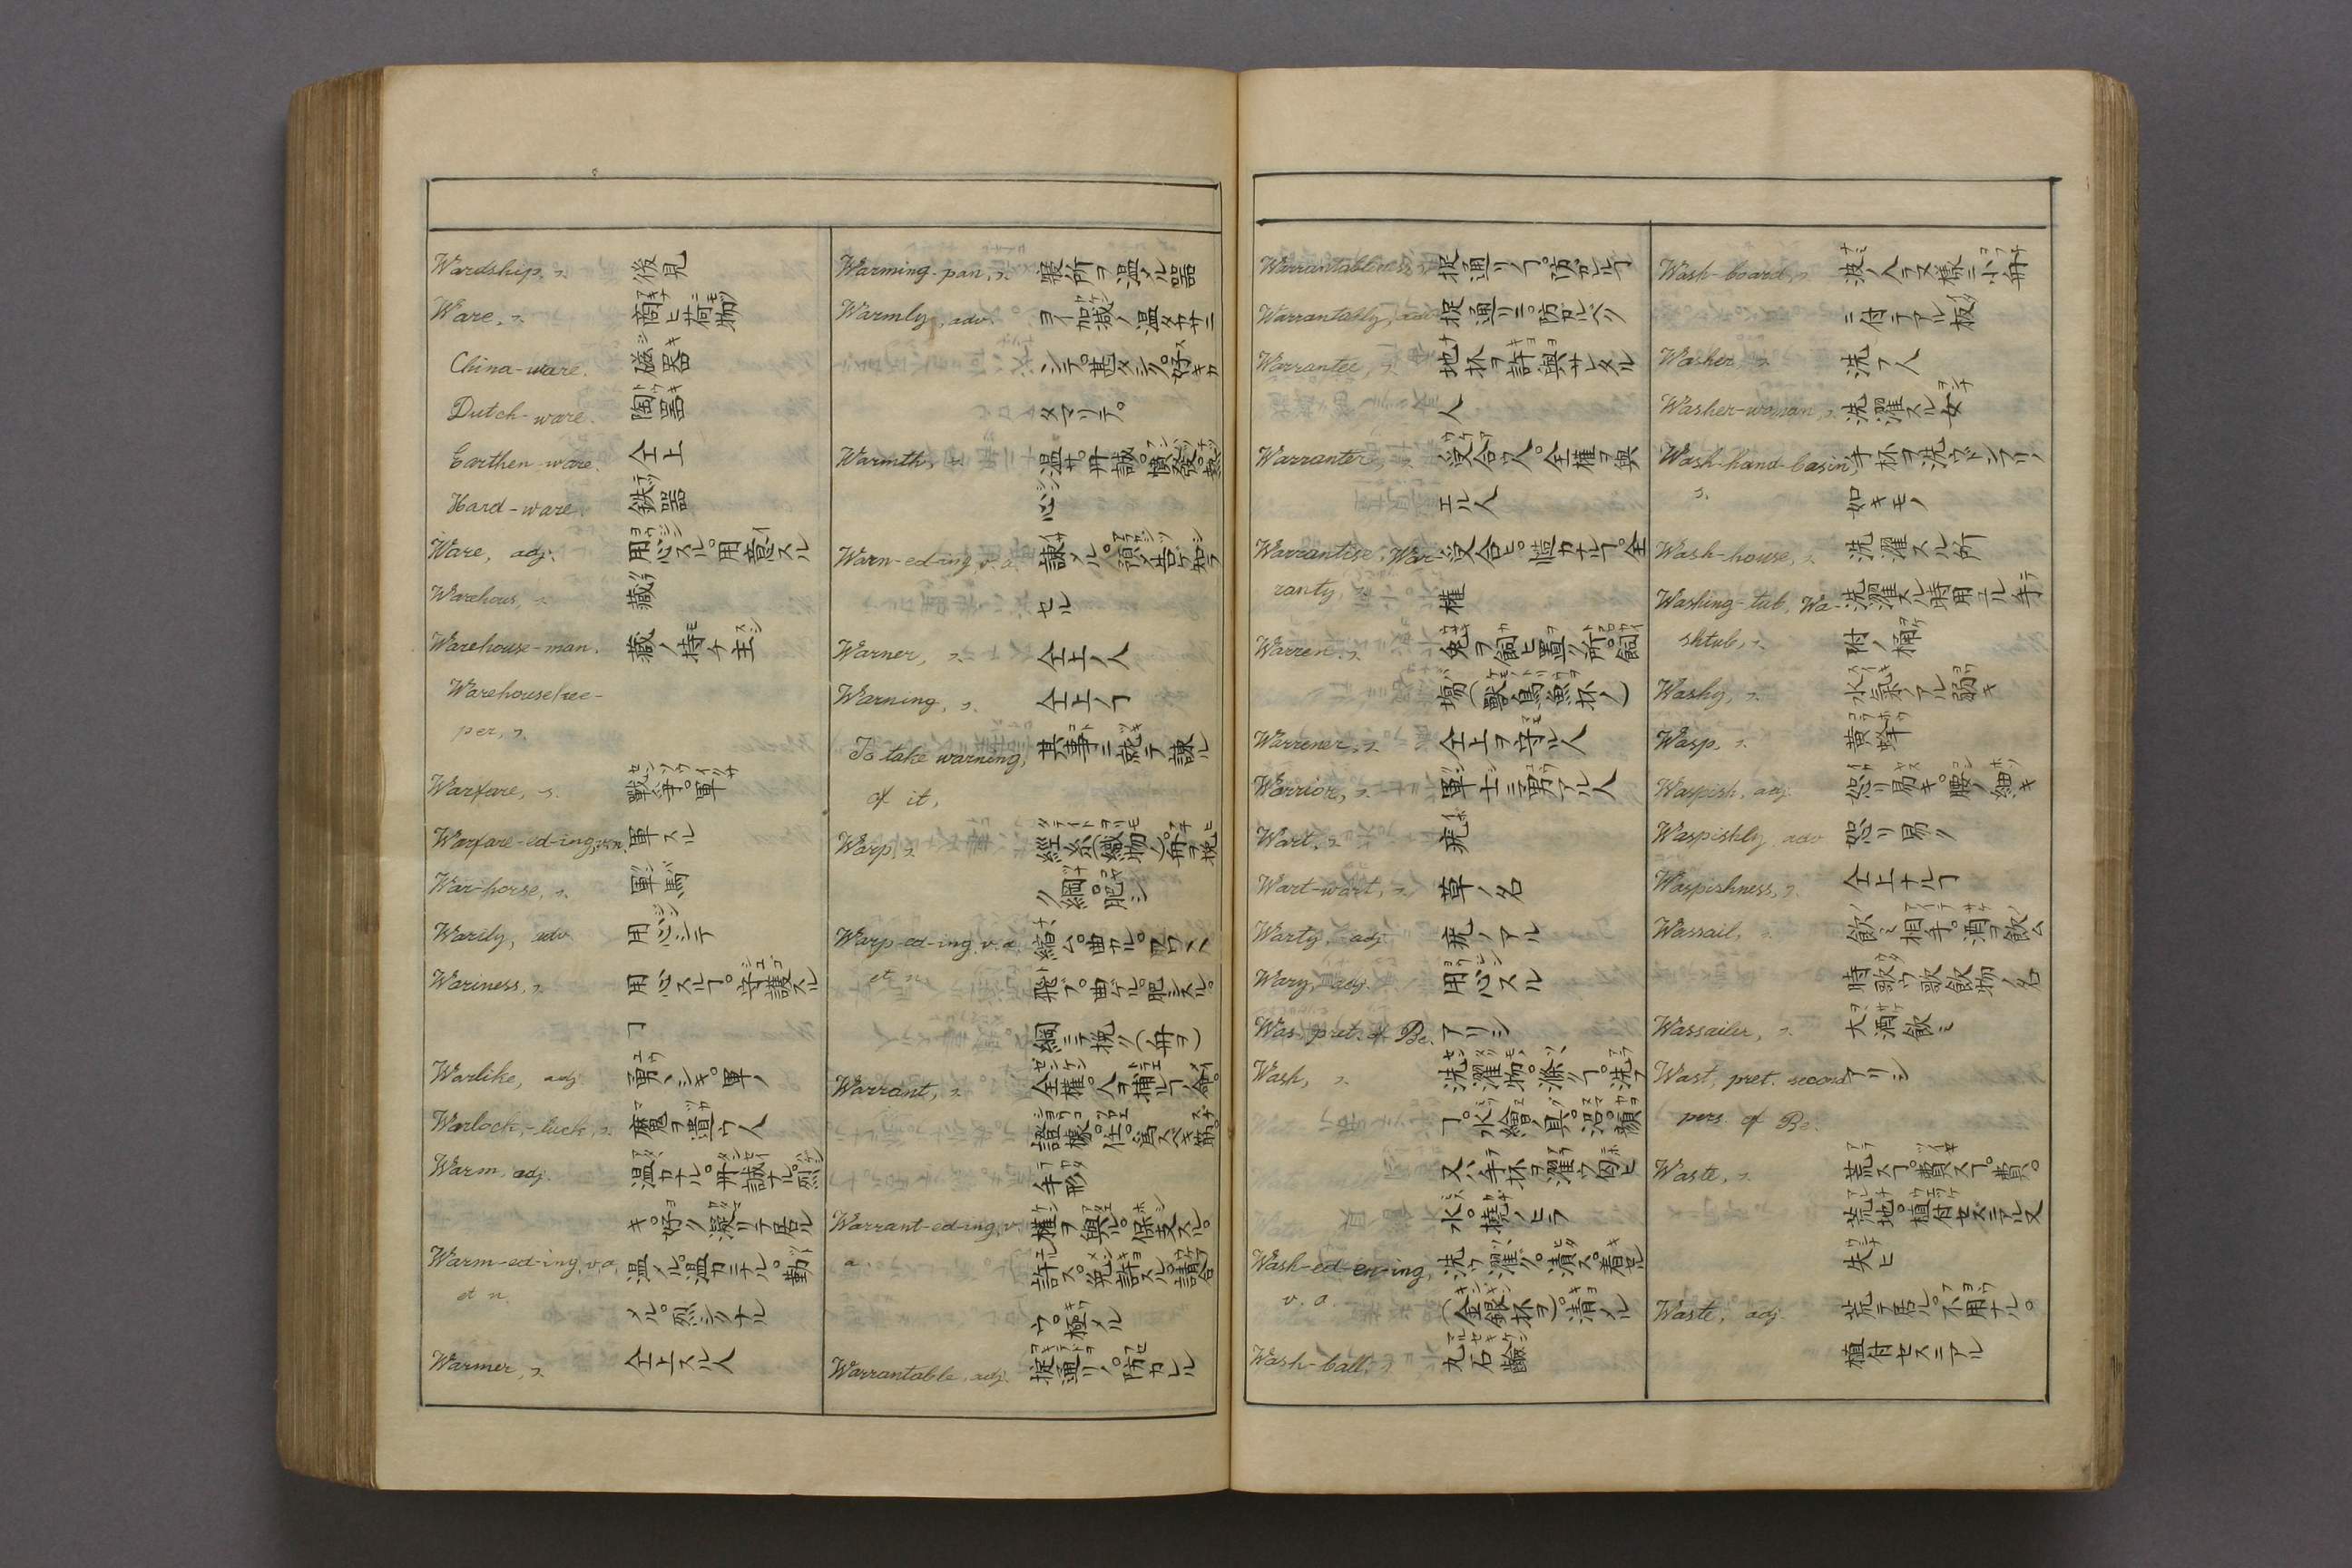 Wardship, s. 後見
Ware, s. 商ヒ荷物
China-ware. 磁器
Dutch-ware. 陶器
Earthen-ware. 仝上
Hard-ware. 鉄器
Ware, adj. 用心スル。用意スル
Warehous, s. 藏
Warehouse-man. 藏ノ持チ主
Warehousekee-
per, s.
Warfare, s. 戰争。軍
Warfare-ed-ing, v.n. 軍スル
War-horse, s. 軍馬
Warily, adv. 用心シテ
Wariness, s. 用心スルヿ。守護スル
ヿ
Warlike, adj. 勇マシキ。軍ノ
Warlock, -luck, s. 魔ヲ遣ウ人
Warm, adj. 温カナル。丹誠ナル。烈
キ。好ク凝リテ居ル
Warm-ed-ing, v.a. 温メル。温カニナル。勤
et n. メル。烈シクナル
Warmer, s. 仝上スル人
Warming-pan, s. 寢所ヲ温メル器
Warmly, adv. ヨイ加減ノ温カサニ
シテ。甚タシク。好キカ
タマリテ。
Warmth, s. 温サ。丹誠。憤發。熱
心
Warn-ed-ing, v.a. 諫メル。預メ告ケ知ラ
セル
Warner, s. 仝上ノ人
Warning, s. 仝上ノヿ
To take warning, 其事ニ就テ諫ル
of it,
Warp, s. 經糸(織物ノ)。舟ヲ挽
ク綱。肥シ
Warp-ed-ing, v.a. 縮ム。曲カル。
et n. 飛フ。曲ケル。肥シスル。
綱ニテ挽ク(舟ヲ)
Warrant, s. 全權。人ヲ捕ルヿノ命。
證據。仕。爲スベキ筋。
手形
Warrant-ed-ing, v. 權ヲ與ル。保支スル。
a. 許ス。免許スル。請合
ウ。極メル
Warrantable, adj. 掟通リノ。防カレル
Warrantableness, s. 掟通リノヿ。防カレルヿ
Warrantably, adv. 掟通リニ。防カルベク
Warrantee, s. 地抔ヲ許與サレタル
人
Warranter, s. 受合人。全權ヲ與
エル人
Warrantise, War- 受合ヒ。慥カナルヿ。全
ranty, s. 權
Warren, s. 兔ヲ飼ヒ置ク所。飼
塲(獸鳥魚抔ノ)
Warrener, s. 仝上ヲ守ル人
Warrior, s. 軍士。勇アル人
Wart, s. 疣
Wart-wort, s. 草ノ名
Warty, adj. 疣ノアル
Wary, adj. 用心スル
Was, pret. of Be. アリシ
Wash, s. 洗濯物。滌クヿ。洗フ
ヿ。水繪ノ具。沼。顔
又ハ手抔ヲ濯ウ匂ヒ
水。撓ノヒラ
Wash-ed-en-ing, 洗ウ。濯ク。漬ス。着セル
v. a. (金銀抔ヲ)。清メル
Wash-ball, s. 丸石鹼
Wash-board, s. 波ノ入ラヌ樣ニ小舟
ニ付テアル板
Washer, s. 洗フ人
Washer-woman, s. 洗濯スル女
Wash-hand-basin, 手抔ヲ洗ウドンブリノ
s. 如キモノ
Wash-house, s. 洗濯スル所
Washing-tub, Wa- 洗濯スル時用エル手
shtub, s. 附ノ桶
Washy, s. 水氣ノアル。弱キ
Wasp, s. 黄蜂
Waspish, adj. 怒リ易キ。腰ノ細キ
Waspishly, adv. 怒リ易ク
Waspishness, s. 仝上ナルヿ
Wassail, s. 飲ミ相手。酒ヲ飲ム
時歌ウ歌。飲物ノ名
Wassailer, s. 大酒飲ミ
Wast, pret. second アリシ
pers. of Be.
Waste, s. 荒スヿ。費スヿ。費。
荒地。植付セズニアル又
失ヒ
Waste, adj. 荒テ居ル。不用ナル。
植付セズニアル